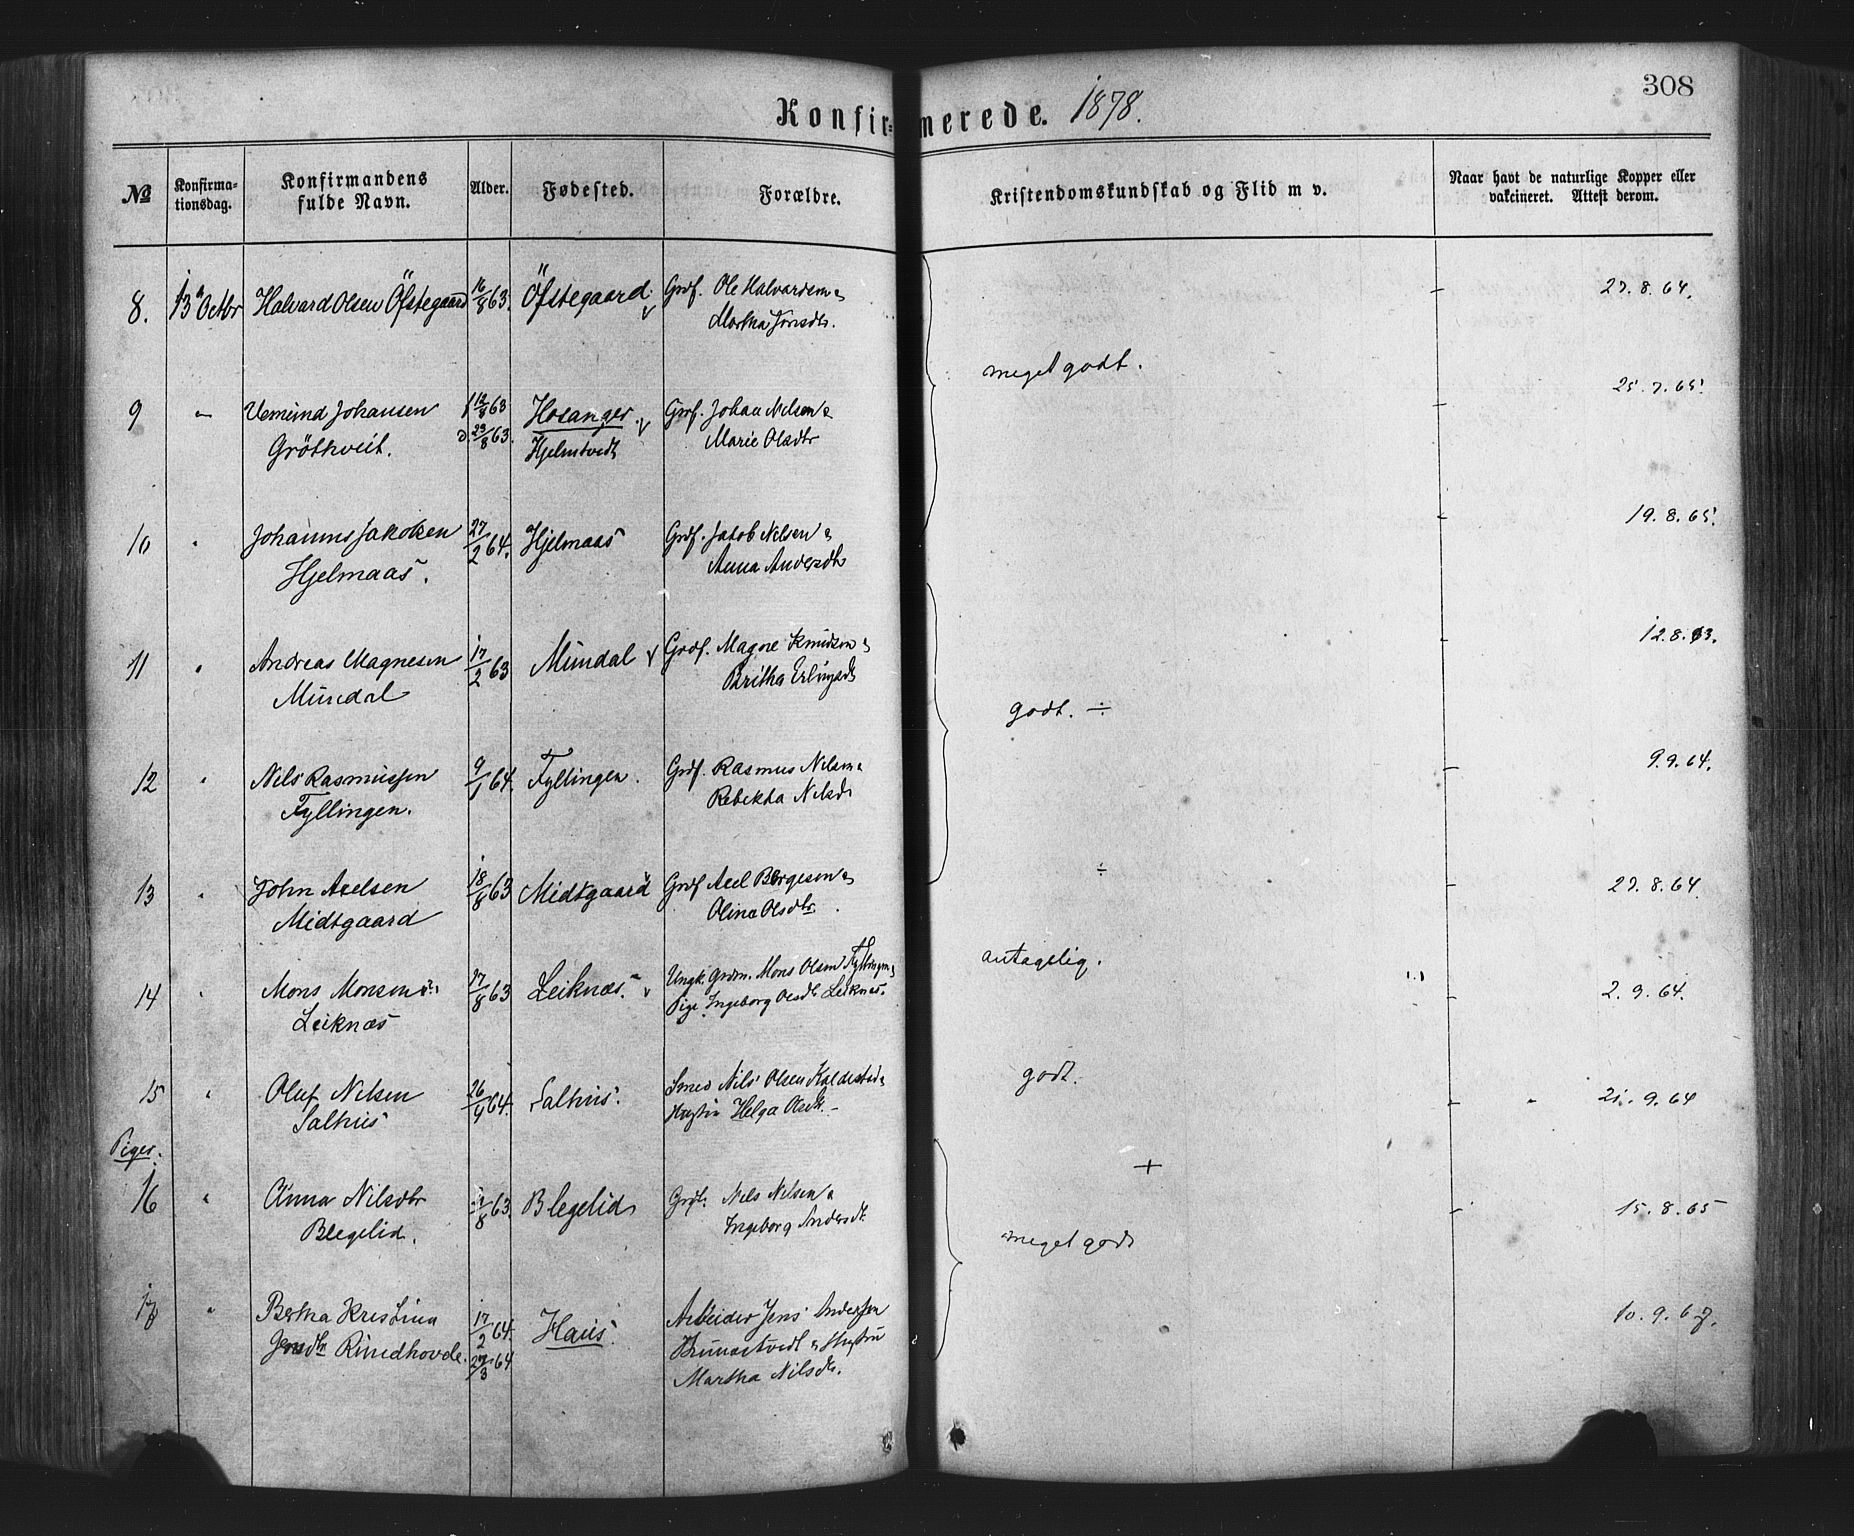 308
Konfirmerede. 1878.
№ Konfirmationsdag. Konfirmandens fulde Navn. Alder. Fødested. Forældre. Kristendomskundskab og Flid m v. Naar havt de naturlige Kopper eller vakcineret. Attest derom.
8. 13 Octbr Halvard Olsen Öfstegaard 16/8 63. Öfstegaard. Grdf. Ole Halvardsen & 27. 8. 64.
Martha Jonsdtr.
meget godt.
9 " Vemund Johansen f 12/8 63 Hosanger Grdf. Johan Nelsen & 25. 7. 65.
Gröthveit. d 23/8 63. Hjelmtvedt Marie Olsdtr
10 " Johannes Jakobsen 27/2 64. Hjelmaas Grdf. Jakob Nelsen & 19. 8. 65.
Hjelmaas. Anna Andersdtr
11 " Andreas Magnesen 17/2 63 Mundal Grdf. Magne Knudsen & 12. 8. 63.
Mundal Britha Erlingsdtr
godt. ÷
12 " Nils Rasmussen 9/1 64. Fyllingen. Grdf. Rasmus Nilsen & 9. 9. 64.
Fyllingen. Rebekka Nilsdtr
13 " John Axelsen 18/8 63 Midtgaard Grdf Axel Børgesen & ÷ 27. 8. 64.
Midtgaard Olina Olsdtr.
antagelig.
14 " Mons Monsen 27/8 63 Leiknæs. Ungk. Grdm. Mons Olsen Fyllingen & 2. 9. 64.
Leiknæs Pige Ingeborg Olsdtr Leiknæs.
15 " Oluf Nilsen 26/4 64. Salhus. Smed Nils Olsen Kaldestad & godt. 21. 9. 64
Salhus Hustru Helga Olsdtr.
Piger.
+
16 " Anna Nilsdtr /8 63. Blegelid Grdf. Nels Nelsen & 15. 8. 65
Blegelid. Ingeborg Andersdtr
meget godt
17 " Bertha Kristina 17/2 64. Haus. Arbeider Jens Anderssen 10. 9. 67.
Jensdtr Rundhovde. 27/3 64 & Hustru
Martha Nilsdtr.